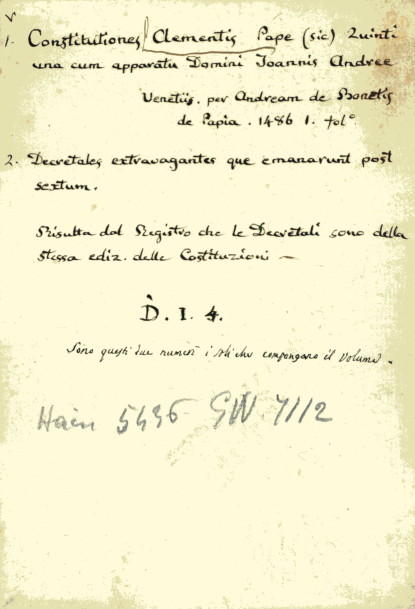 1. Constitutiones Clementis Pape (sic) Quinti
una cum apparatu Domini Joannis Andree
Venetiis. per Andream de Bonetis
de Papia. 1486 1. fol°
2. Decretales extravagantes que emanarunt post
sextum.
Risulta dal Registro che le Decretali sono della
stessa ediz. delle Costituzioni —
D. I. 4.
Sono questi due numeri i soli che compongano il volume.
Hain 5436 GW. 7112